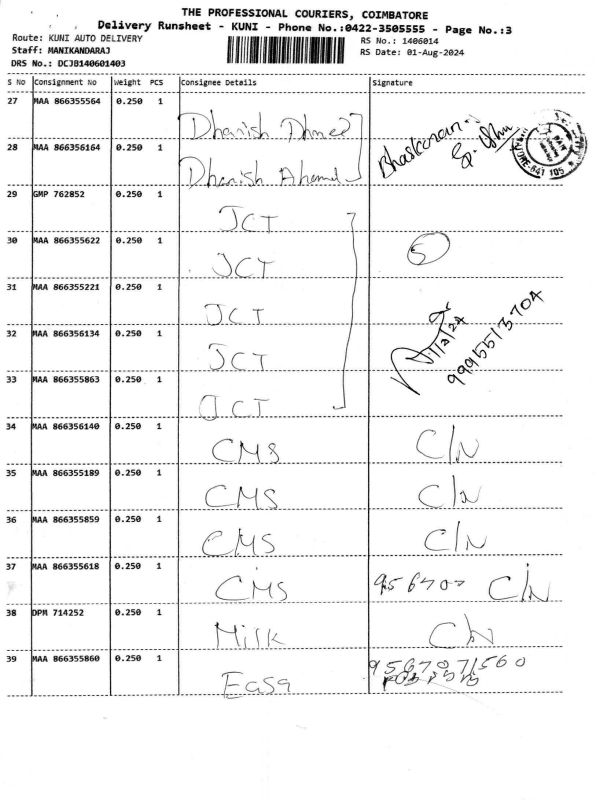 THE PROFESSIONAL COURIERS, COIMBATORE
Delivery Runsheet - KUNI - Phone No.:0422-3505555 - Page No.:3
Route: KUNI AUTO DELIVERY
RS No.: 1406014
Staff: MANIKANDARAJ
RS Date: 01-Aug-2024
DRS No.: DCJB140601403
S No Consignment No Weight PCS Consignee Details Signature
27 MAA 866355564 0.250 1 Dhanish Ahmed Bhaskaran
28 MAA 866356164 0.250 1 Dhanish Ahamed
29 GMP 762852 0.250 1 JCT
30 MAA 866355622 0.250 1 JCT 5
31 MAA 866355221 0.250 1 JCT
32 MAA 866356134 0.250 1 JCT 9995513704
33 MAA 866355863 0.250 1 JCT
34 MAA 866356140 0.250 1 CMS C/N
35 MAA 866355189 0.250 1 CMS C/N
36 MAA 866355859 0.250 1 CMS C/N
37 MAA 866355618 0.250 1 CMS C/N
38 DPM 714252 0.250 1 Milk C/N
39 MAA 866355860 0.250 1 Easa